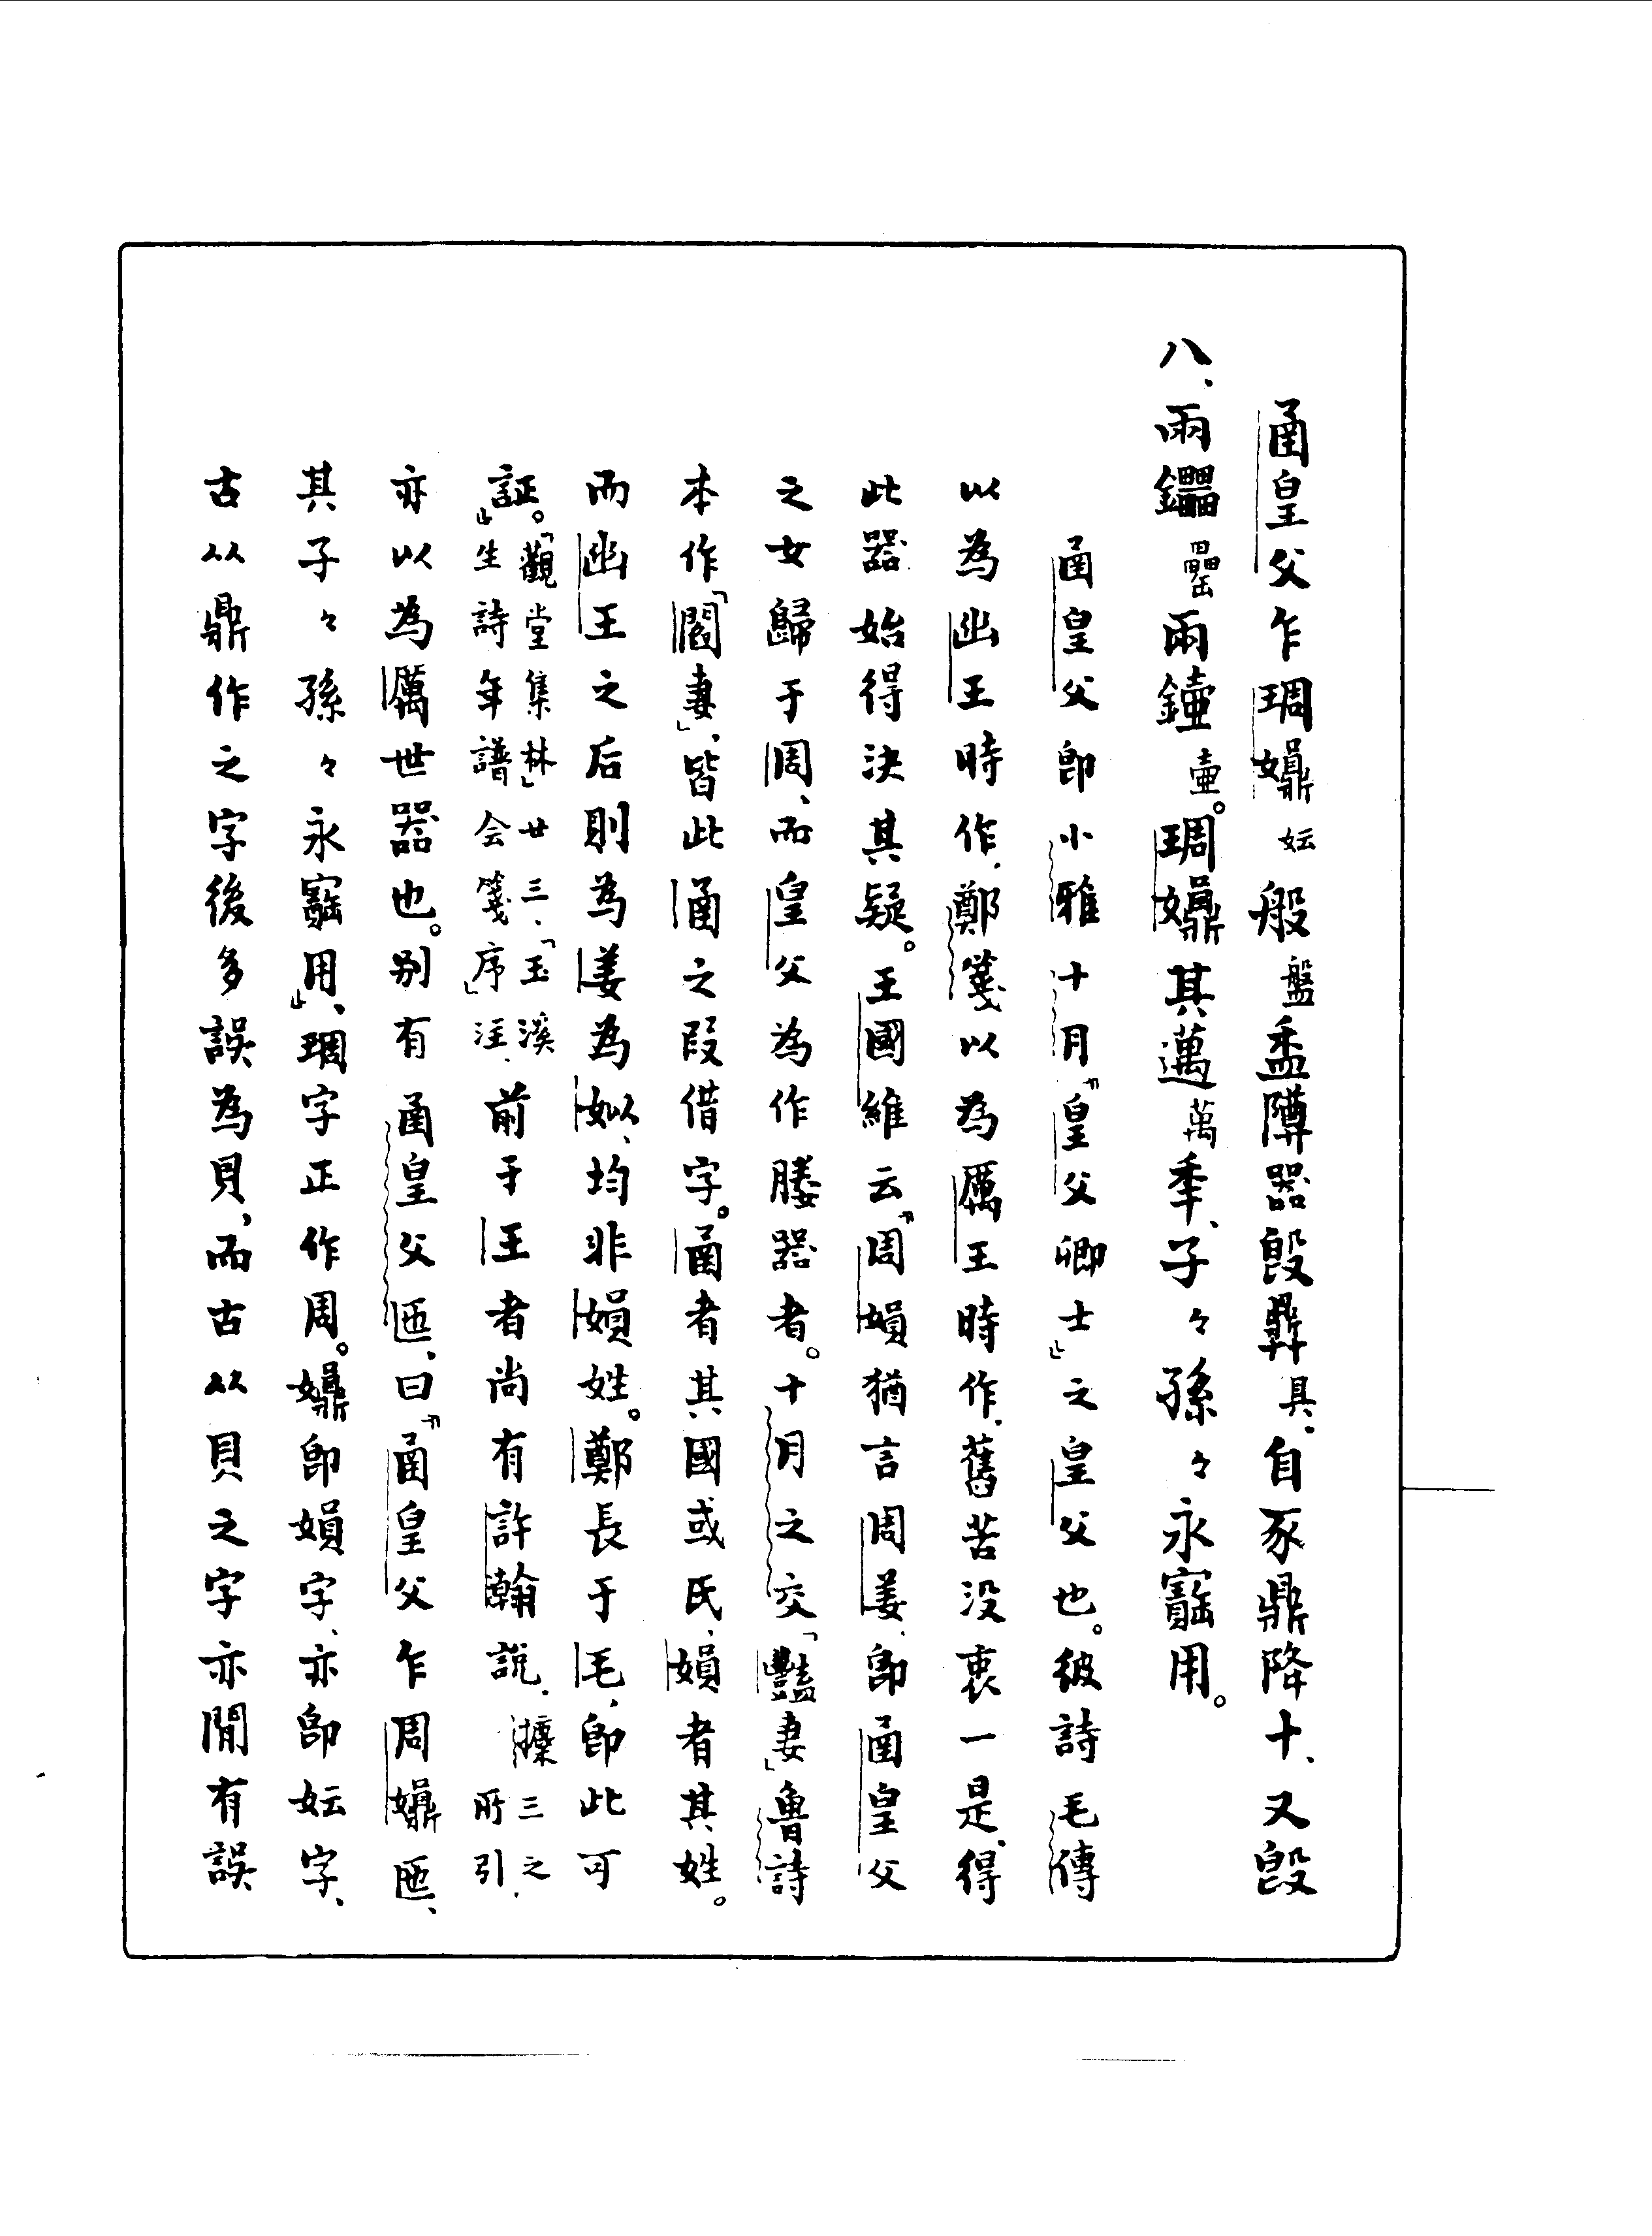 函皇父乍琱㜏妘般盤盉𨻰器𣪘鼎具、自豕鼎降十、又𣪘
八、兩鑘罍兩鐘壺。琱㜏其邁萬年、子々孫々永寶用。
函皇父即小雅十月『皇父卿士』之皇父也。彼詩毛傳
以為幽王時作、鄭箋以為厲王時作、舊苦没衷一是、得
此器始得決其疑。王國維云『周娟猶言周姜、即函皇父
之女歸于周、而皇父為作媵器者。十月之交「豔妻」魯詩
本作「閻妻」、皆此函之叚借字。函者其國或氏、娟者其姓。
而幽王之后則為姜為姒、均非娟姓。鄭長于毛、即此可
証。』「觀堂集林」廿三、「玉溪生詩年譜会箋序」注、前于王者尚有許瀚說、攈三之一所引、
亦以為厲世器也。别有函皇父匜、曰『函皇父乍周㜏匜、
其子々孫々永寶用』、琱字正作周。㜏即娟字、亦即妘字、
古从鼎作之字後多誤為貝，而古从貝之字亦閒有誤